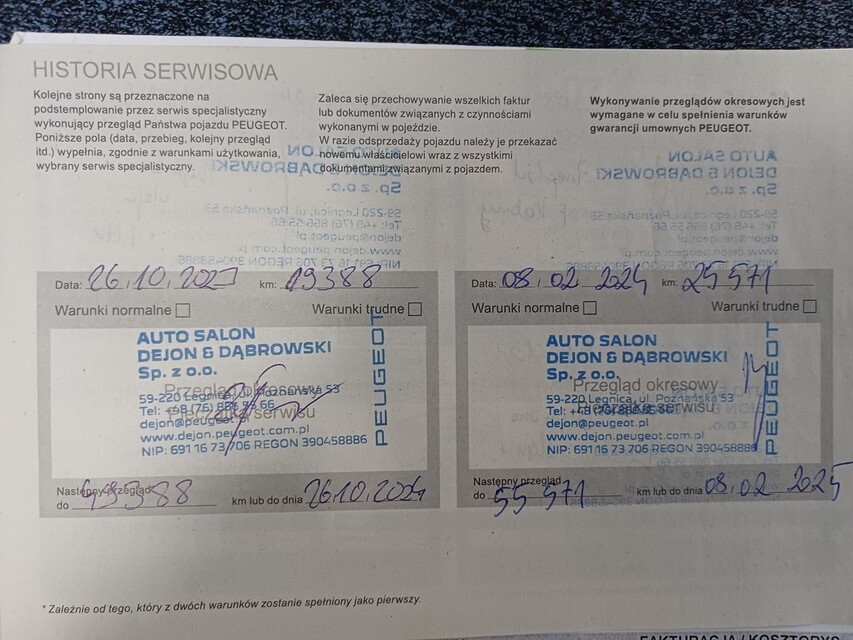 HISTORIA SERWISOWA
Kolejne strony są przeznaczone na
podstemplowanie przez serwis specjalistyczny
wykonujący przegląd Państwa pojazdu PEUGEOT.
Poniższe pola (data, przebieg, kolejny przegląd
itd.) wypełnia, zgodnie z warunkami użytkowania,
wybrany serwis specjalistyczny.
Zaleca się przechowywanie wszelkich faktur
lub dokumentów związanych z czynnościami
wykonanymi w pojeździe.
W razie odsprzedaży pojazdu należy je przekazać
nowemu właścicielowi wraz z wszystkimi
dokumentami związanymi z pojazdem.
Wykonywanie przeglądów okresowych jest
wymagane w celu spełnienia warunków
gwarancji umownych PEUGEOT.
Data: 26.10.2023 km: 19388
Warunki normalne Warunki trudne
AUTO SALON
DEJON & DĄBROWSKI
Sp. z o.o.
Przegląd okresowy
59-220 Legnica, ul. Poznańska 53
Tel: +48 (76) 856 55 66
Pieczątka serwisu
dejon@peugeot.pl
www.dejon.peugeot.com.pl
NIP: 691 16 73 706 REGON 390458886
PEUGEOT
Następny przegląd
do 49388 km lub do dnia 26.10.2024
Data: 08.02 2024 km: 25571
Warunki normalne Warunki trudne
AUTO SALON
DEJON & DĄBROWSKI
Sp. z o.o.
Przegląd okresowy
59-220 Legnica, ul. Poznańska 53
Pieczątka serwisu
dejon@peugeot.pl
www.dejon.peugeot.com.pl
NIP: 691 16 73 706 REGON 390458886
PEUGEOT
Następny przegląd
do 55 571 km lub do dnia 08.02 2025
* Zależnie od tego, który z dwóch warunków zostanie spełniony jako pierwszy.
FAKTURACJA / KOSZTORYS